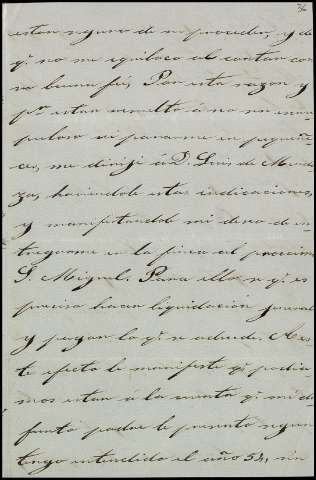 estar seguro de su proceder, y de
qe. no me equiboco al contar con
su buena fé. Por esta razon y
pr. estar resuelto á no ser
ni pararme en pequeñe-
ces, me dirijí á D. Luis de Mendo-
za, haciendole estas indicaciones,
y manifestandole mi deseo de en-
tregarme en la finca al procsimo
S. Miguel. Para ello se qe. es
preciso hacer liquidación jeneral
y pagar lo qe. se adeude. A es-
te efecto le manifesté qe. podia-
mos estar a la cuenta qe. mi di-
funto padre le presentó segun
tengo entendido el año 54, sin